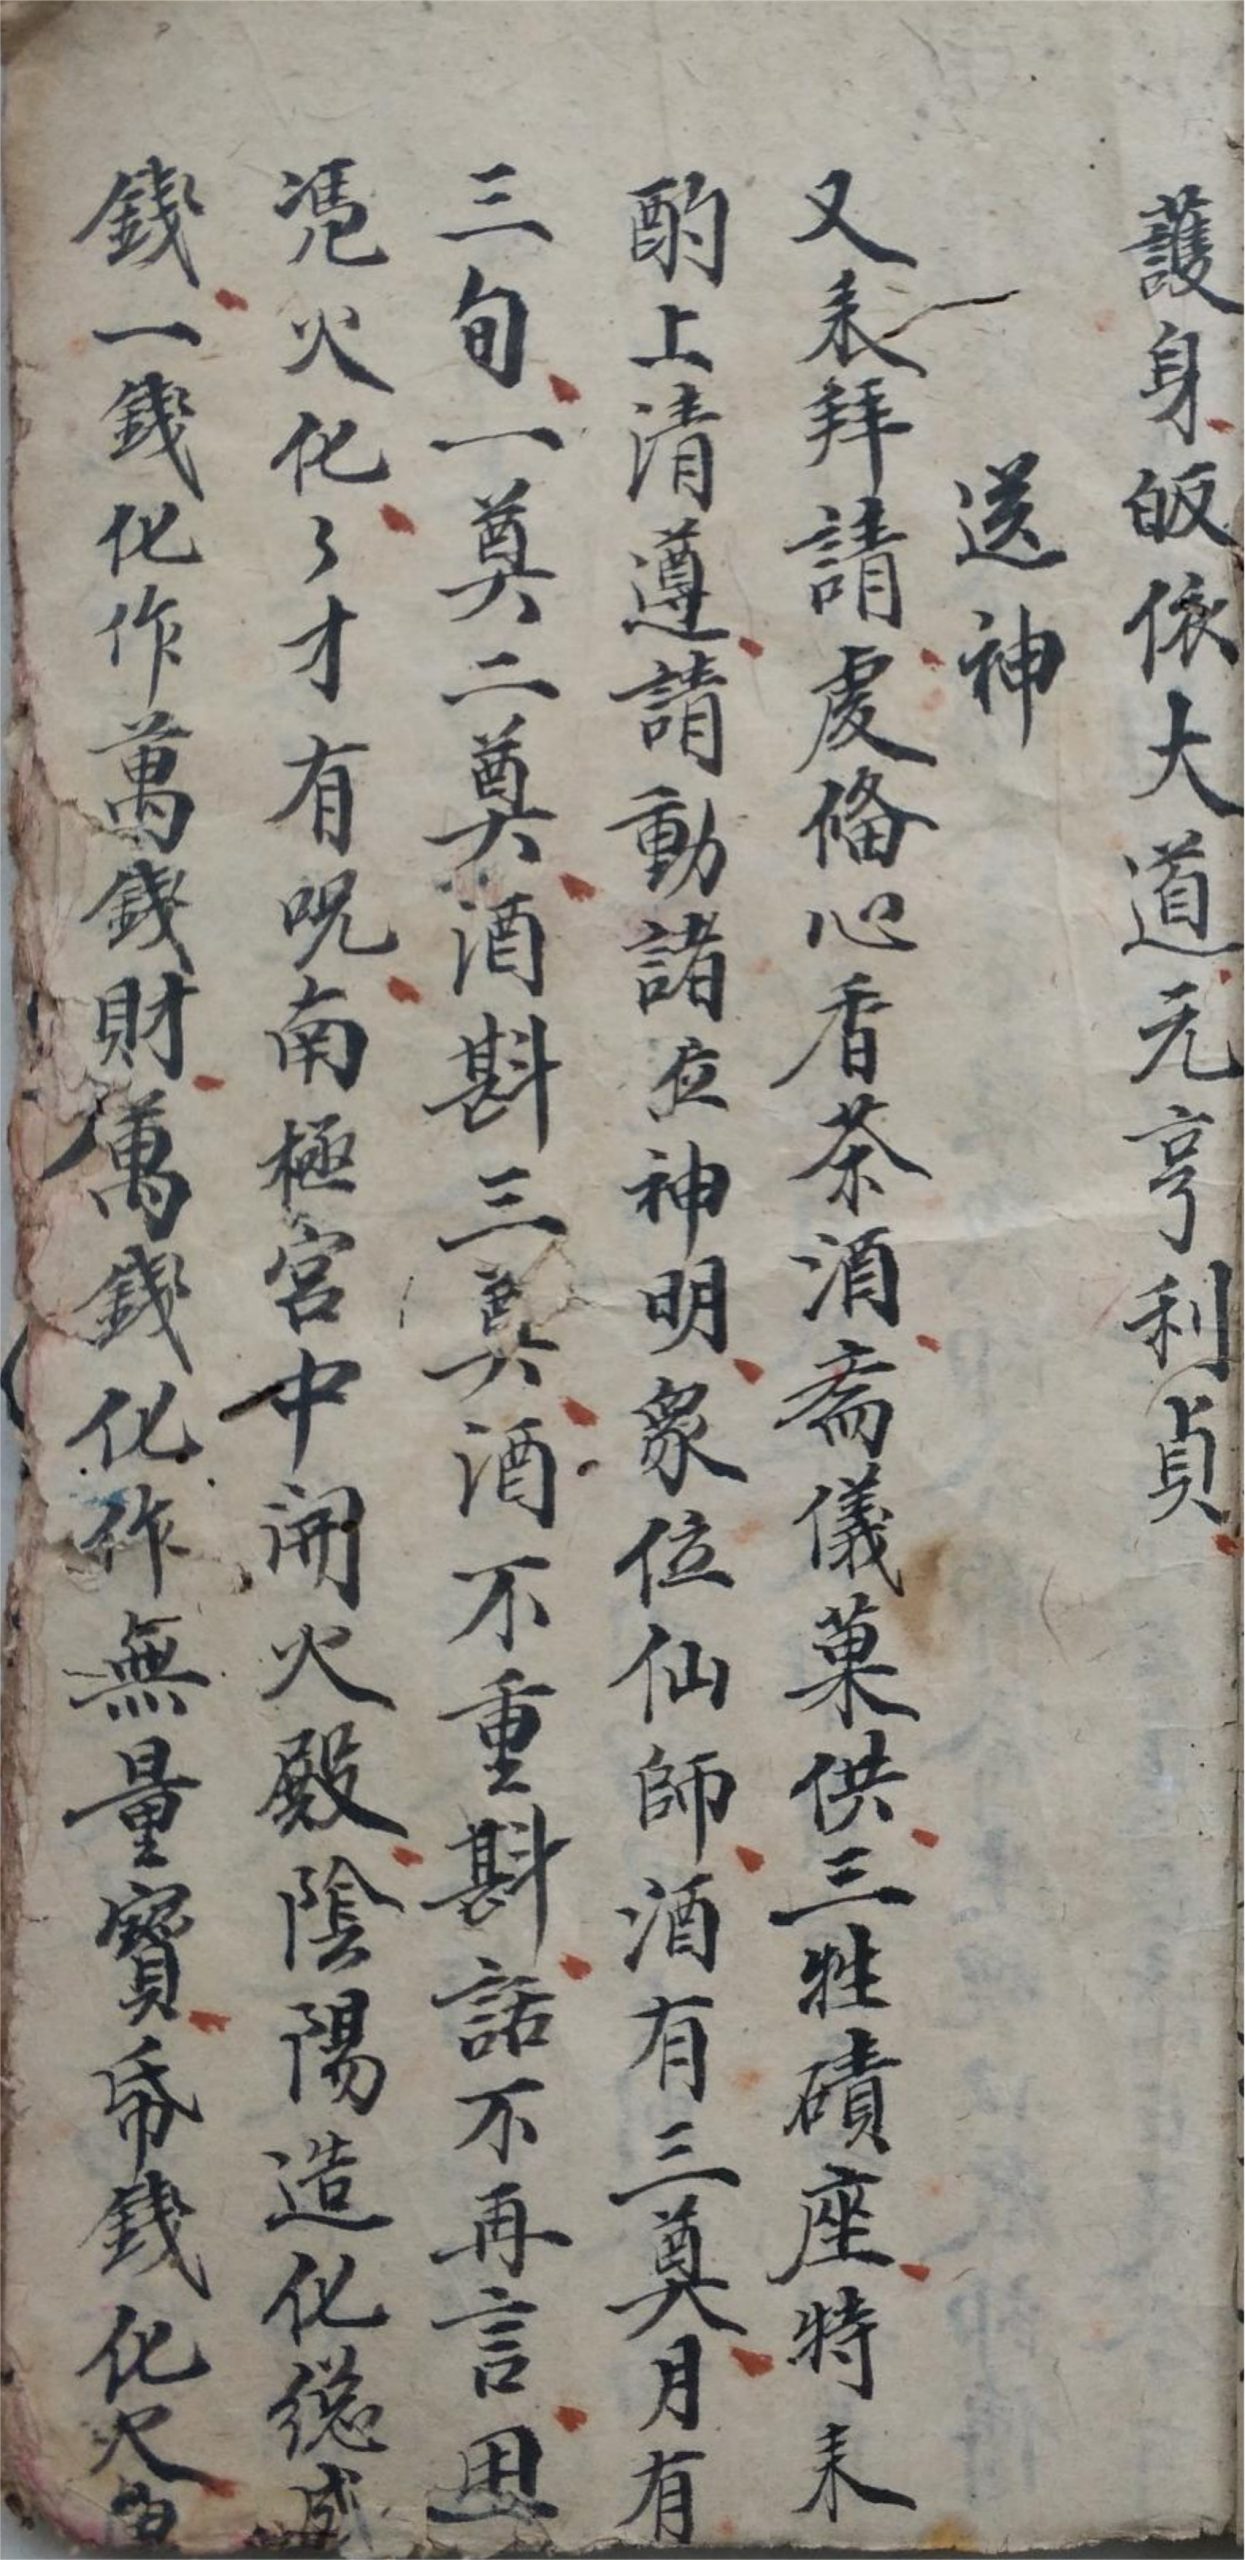 護身皈依大道元亨利貞
送神
又来拜請虔俻心香茶酒斋儀菓供三牲磧座特来
酌上清遵請動諸位神明眾位仙師酒有三奠月有
三旬一奠二奠酒斟三奠酒不重斟話不再言
凴火化々才有呪南極宮中開火殿陰陽造化總成
錢一錢化作萬錢財萬錢化作無量寶帋錢化火